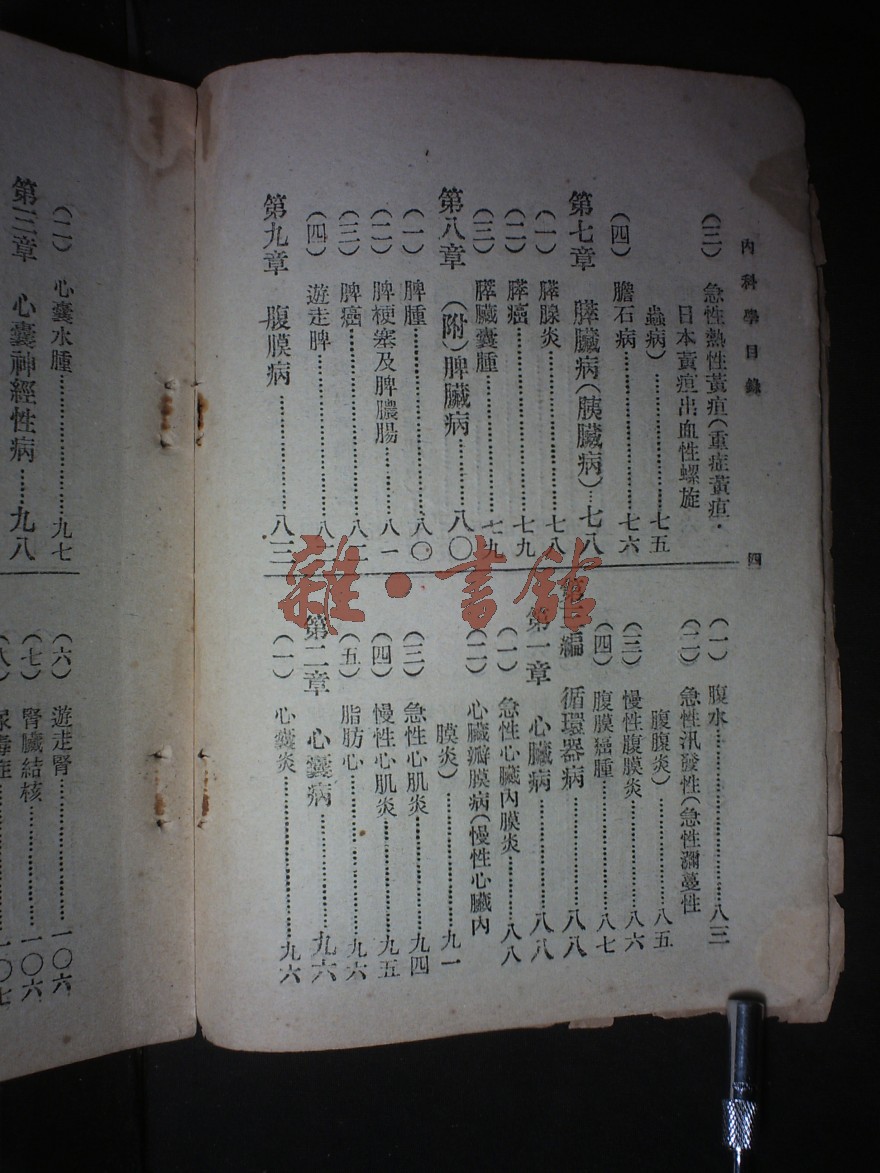 內科學目錄
四
(三) 急性熱性黃疸(重症黃疸·
日本黃疸出血性螺旋
蟲病)……七五
(四) 膽石病……七六
第七章 膵臟病(胰臟病)……七八
(一) 膵腺炎……七八
(二) 膵癌……七九
(三) 膵臟囊腫……七九
第八章 (附)脾臟病……八〇
(一) 脾腫……八〇
(二) 脾梗塞及脾膿腸……八一
(三) 脾癌……八二
(四) 遊走脾……八二
第九章 腹膜病……八三
(一) 腹水……八三
(二) 急性汎發性(急性瀰蔓性
腹腹炎)……八五
(三) 慢性腹膜炎……八六
(四) 腹膜癌腫……八七
第三編 循環器病……八八
第一章 心臟病……八八
(一) 急性心臟內膜炎……八八
(二) 心臟瓣膜病(慢性心臟內
膜炎)……九一
(三) 急性心肌炎……九四
(四) 慢性心肌炎……九五
(五) 脂肪心……九六
第二章 心囊病……九六
(一) 心囊炎……九六
(二) 心囊水腫……九七
第三章 心囊神經性病……九八
(六) 遊走腎……一〇六
(七) 腎臟結核……一〇六
(八) 尿毒症……一〇七
雜·書館